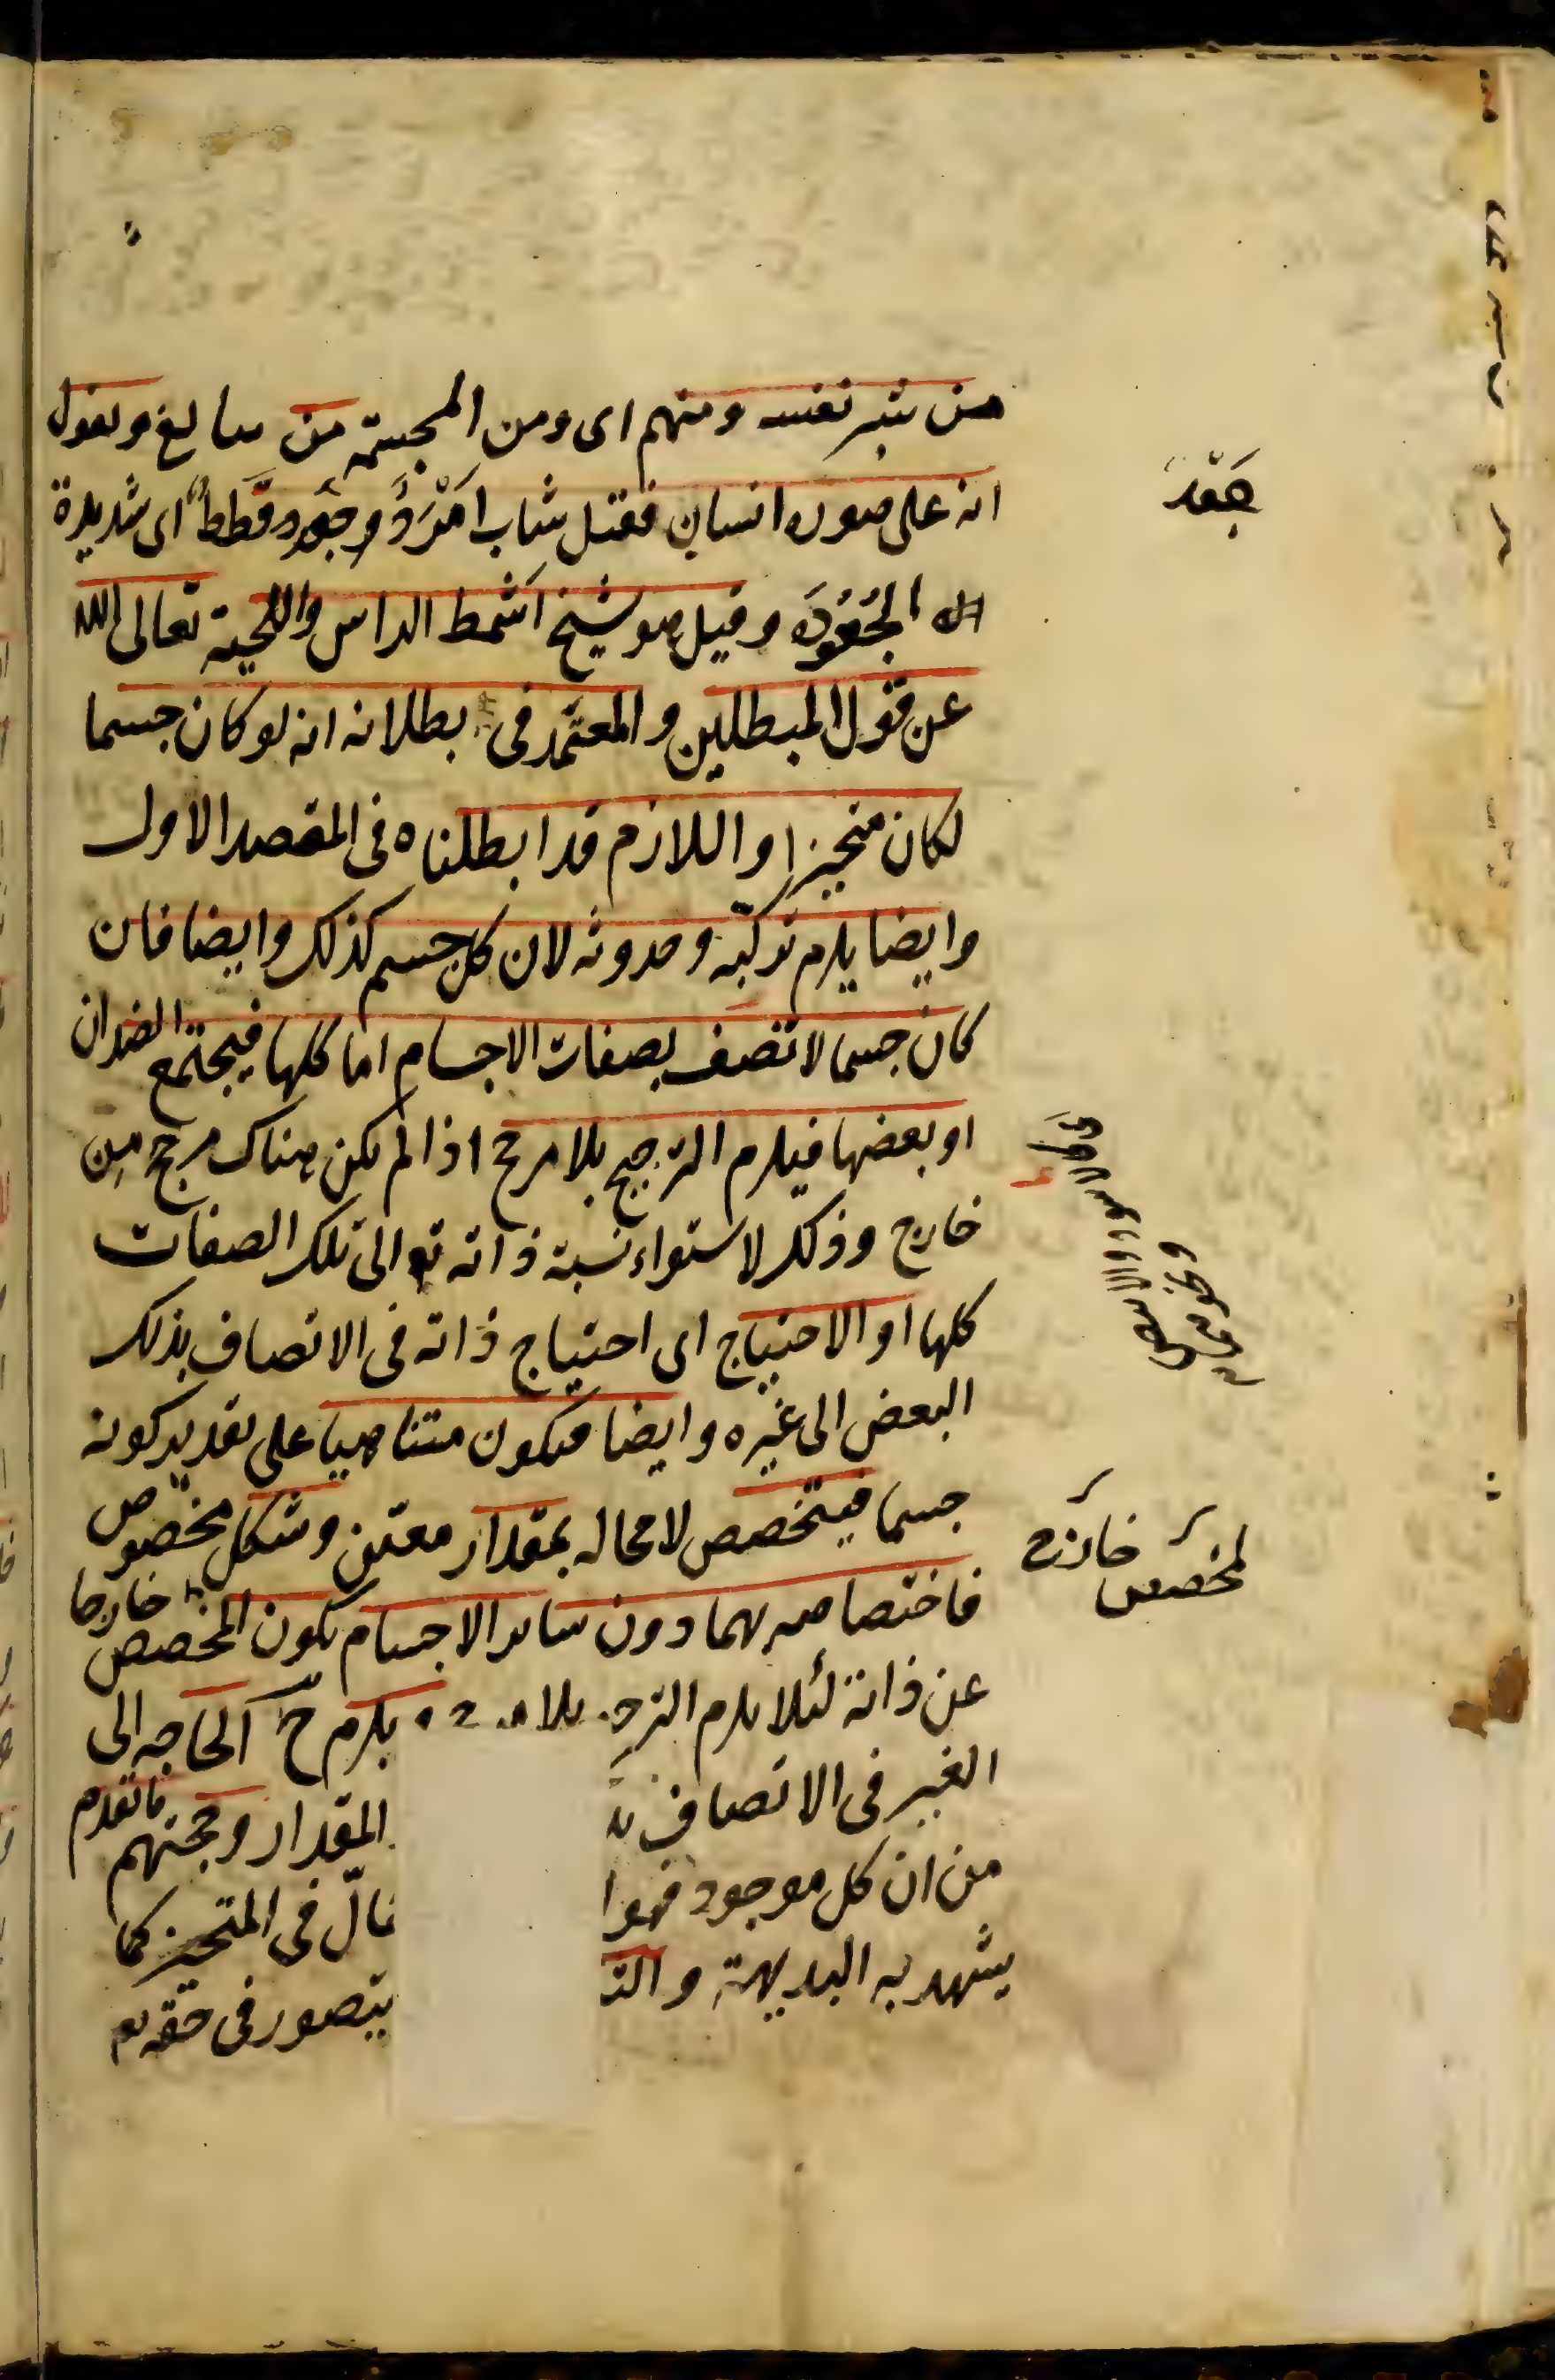 من شبر نفسه ومنهم اى ومن المجسمة من يبالغ ويقول
انه على صورة انسان فقيل شاب امْرَدُ وجَعْد قَطَطٌ اى شديدة
الجُعُودَة وقيل هو شيخ اَشْمط الراس واللحية تعالى الله
عن قول المبطلين والمعتمد فى بطلانه انه لو كان جسما
لكان متحيزا واللازم قد ابطلناه فى المقصد الاول
وايضا يلزم تركّبه وحدوثه لان كل جسم كذلك وايضا فان
كان جسما لاتصف بصفات الاجسام اما كلها فيجتمع الضدان
او بعضها فيلزم الترجيح بلا مرجح اذا لم يكن هناك مرجح من
خارج وذلك لاستواء نسبة ذاته تع الى تلك الصفات
كلها او الاحتياج اى احتياج ذاته فى الاتصاف بذلك
البعض الى غيره وايضا فيكون متناهيا على تقدير كونه
جسما فيتخصص لا محاله بمقدار معيّن وشكل مخصوص
فاختصاصه بهما دون ساير الاجسام يكون المخصص خارجا
عن ذاته لئلا يلزم بلا يلزم ح الحاجه الى
الغير فى الاتصاف المقدار وحجتهم ماتقدم
من ان كل موجود فهو فى المتحيز كما
يشهد به البديهة يتصور فى حقه تع
جَعْد
لمخصص خارج